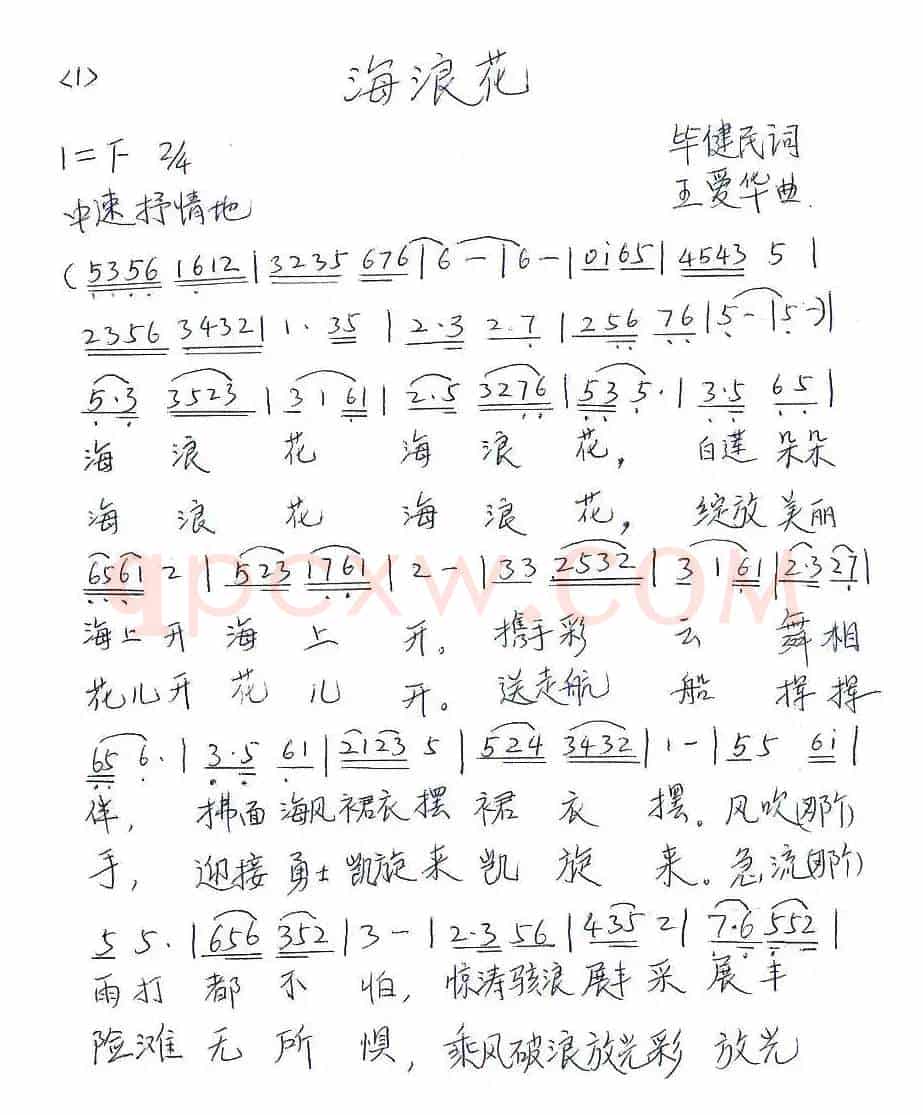 <1>
海浪花
1=F 2/4
毕健民词
中速 抒情地
王爱华曲.
(5356 1612|3235 676|6-|6-|0i65|4543 5|
2356 3432|1· 35|2·3 2·7|256 76|5-|5-)|
5·3 3523|3 1 61|2·5 3276|53 5·|3·5 65|
海 浪 花 海 浪 花, 白莲 朵朵
海 浪 花 海 浪 花, 绽放 美丽
6561 2|523 1761|2-|33 2532|3 1 61|2·3 27|
海上开 海 上 开。 携手彩 云 舞相
花儿开 花 儿 开。 送走航 船 挥挥
qpcxw.com
65 6·|3·5 61|2123 5|524 3432|1-|55 6i|
伴, 拂面 海风裙衣摆 裙 衣 摆。风吹(那个)
手, 迎接 勇士凯旋来 凯 旋 来。急流(那个)
5 5·|656 352|3-|2·3 56|435 2|7·6 552|
雨打 都 不 怕, 惊涛骇浪展丰采 展 丰
险滩 无 所 惧, 乘风破浪放光彩 放光